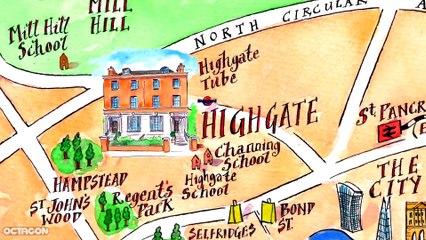 MILL
HILL
Mill Hill
School
NORTH CIRCULAR
Highgate
Tube
HIGHGATE
St Pancr
Channing
School
Highgate
School
HAMPSTEAD
ST JOHN'S
WOOD
Regents
Park
THE
CITY
BOND
ST.
SELFRIDGES
OCTAGON